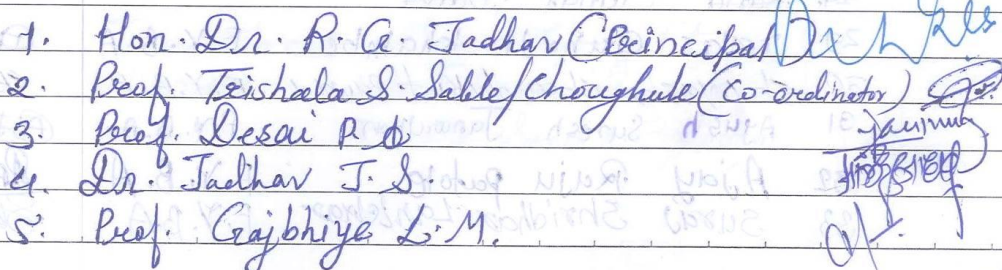 1. Hon. Dr. R. G. Jadhav (Principal)
2. Prof. Trishala S. Sable/Choughule (Co-ordinator)
3. Prof. Desai P. D
4. Dr. Jadhav J. S.
5. Prof. Gajbhiye L. M.